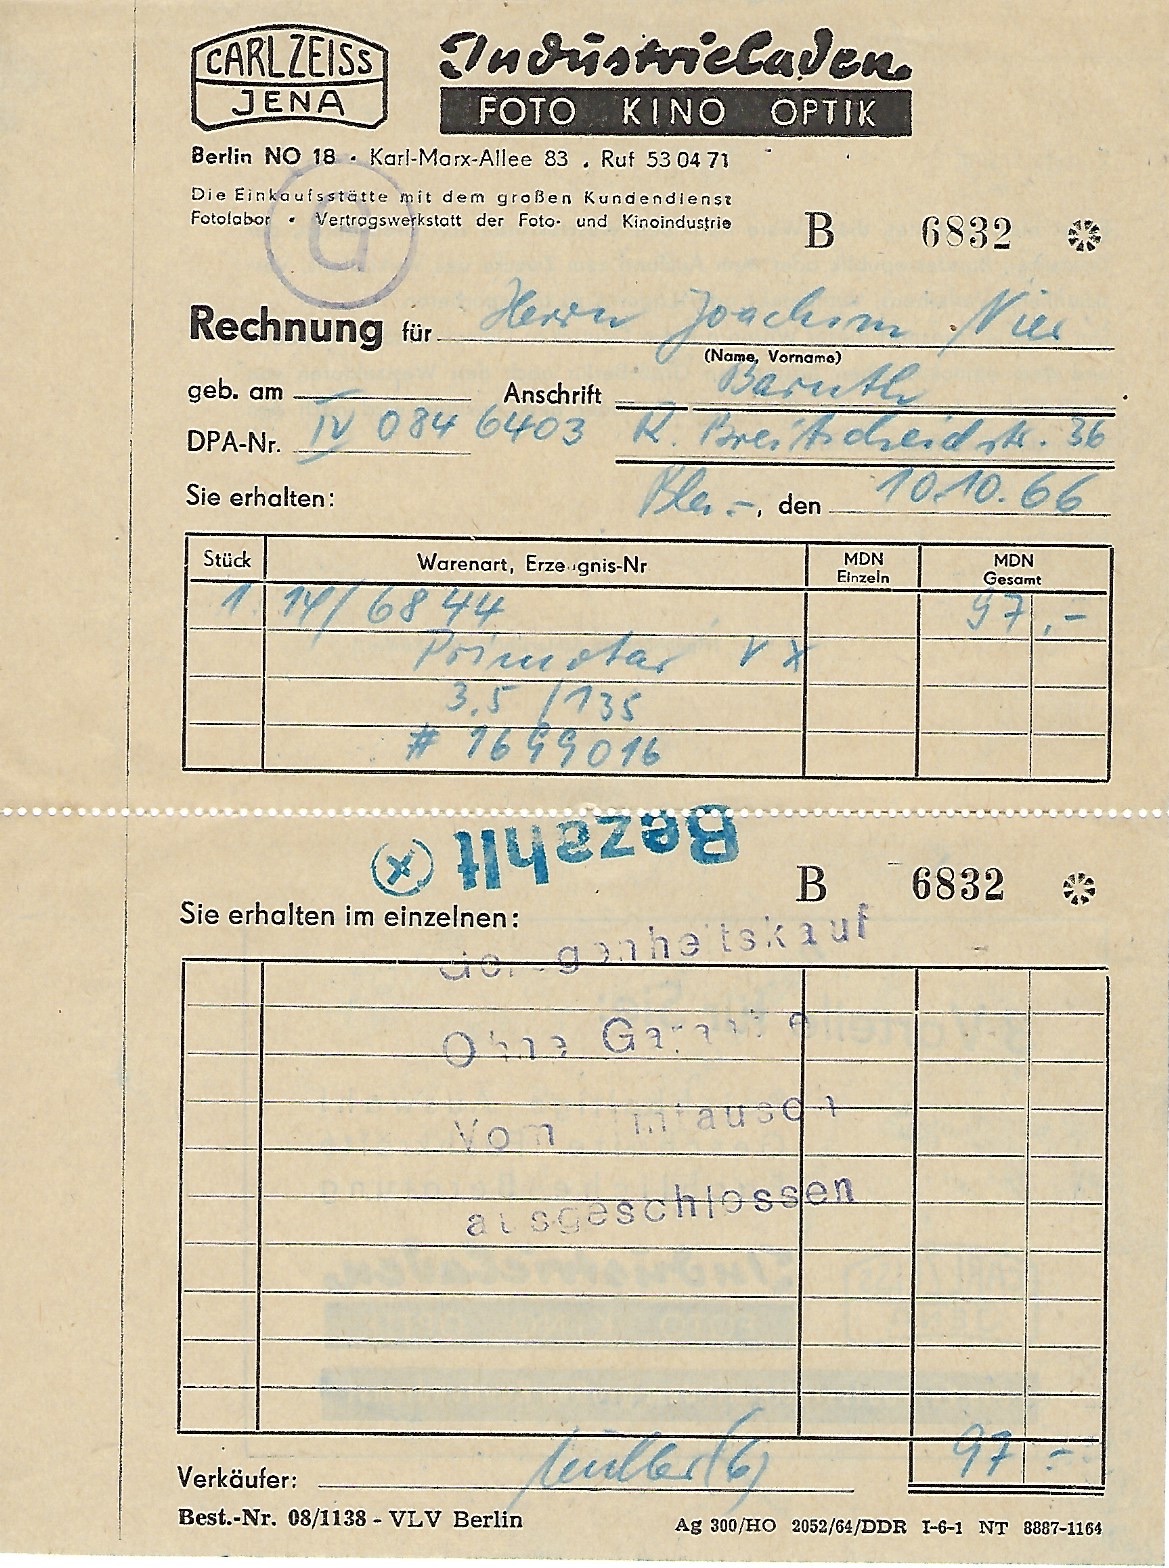 CARL ZEISS
JENA
Industrieladen
FOTO KINO OPTIK
Berlin NO 18 · Karl-Marx-Allee 83 . Ruf 53 04 71
Die Einkaufsstätte mit dem großen Kundendienst
Fotolabor • Vertragswerkstatt der Foto- und Kinoindustrie
G
B 6832
Rechnung für Herrn Joachim Nier
(Name, Vorname)
geb. am Anschrift Baruth
DPA-Nr. IV 084 6403 R. Breitscheidstr. 36
Sie erhalten: Bln.-, den 10.10.66
Stück Warenart, Erzeugnis-Nr MDN Einzeln MDN Gesamt
1 14/6844 97,-
Primotar V X
3.5 /135
# 1699016
Bezahlt
B 6832
Sie erhalten im einzelnen:
Gelegenheitskauf
Ohne Garantie
Vom Umtausch
ausgeschlossen
97 -
Verkäufer: Müller (6)
Best.-Nr. 08/1138 - VLV Berlin
Ag 300/HO 2052/64/DDR I-6-1 NT 8887-1164